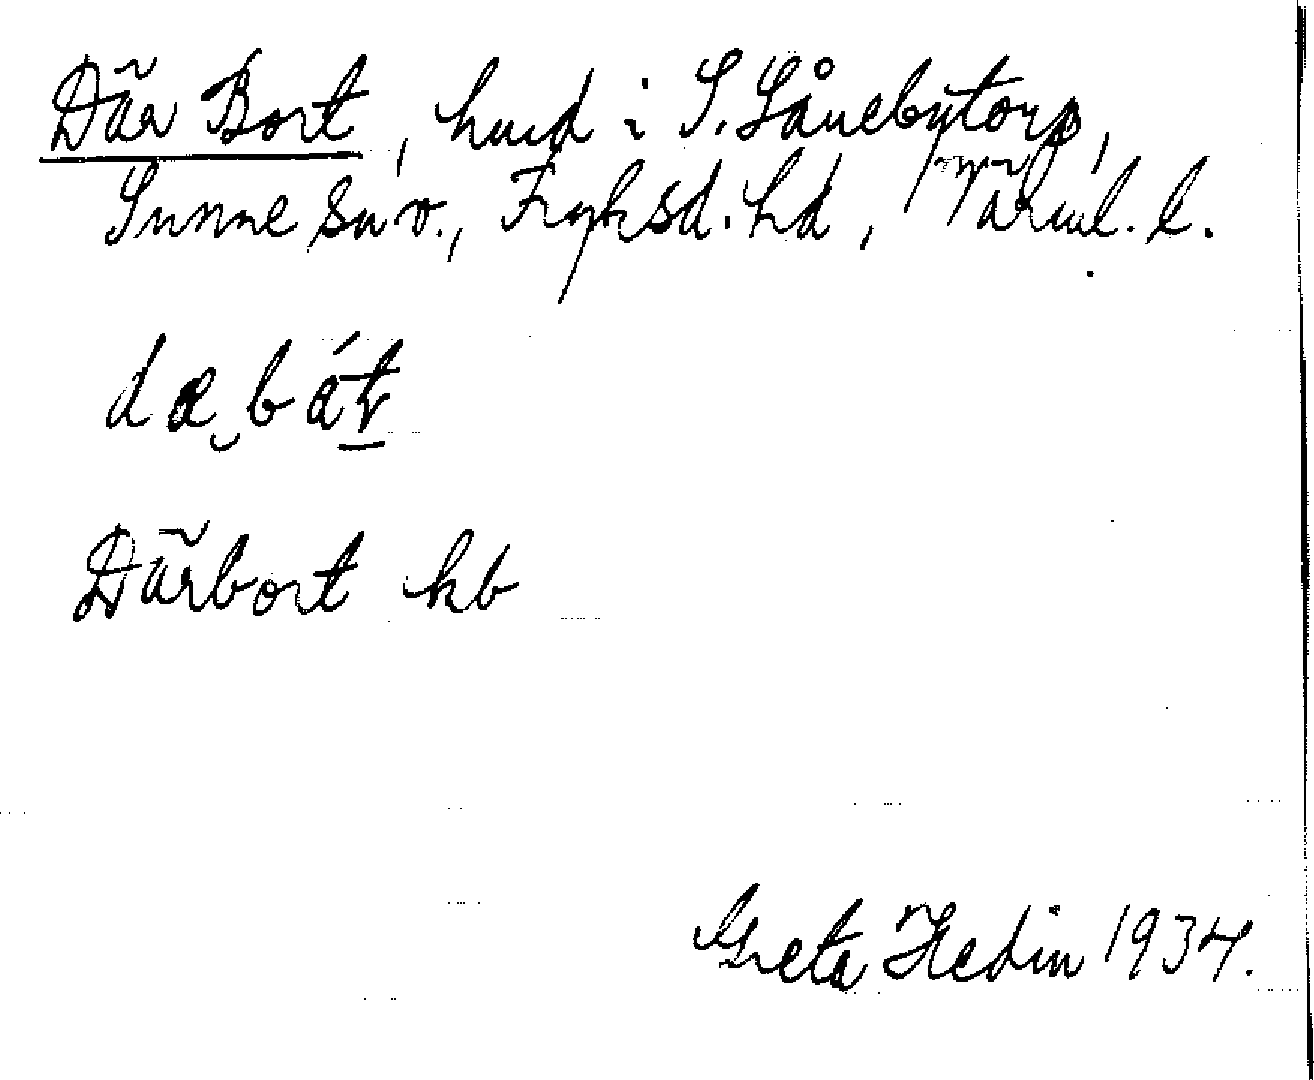 Där Bort, husd i S. Lånebytorp,
Sunne sn v., Fryksd. hd, Värml. l.
dæ bát
Därbort kb
Greta Hedin 1934.